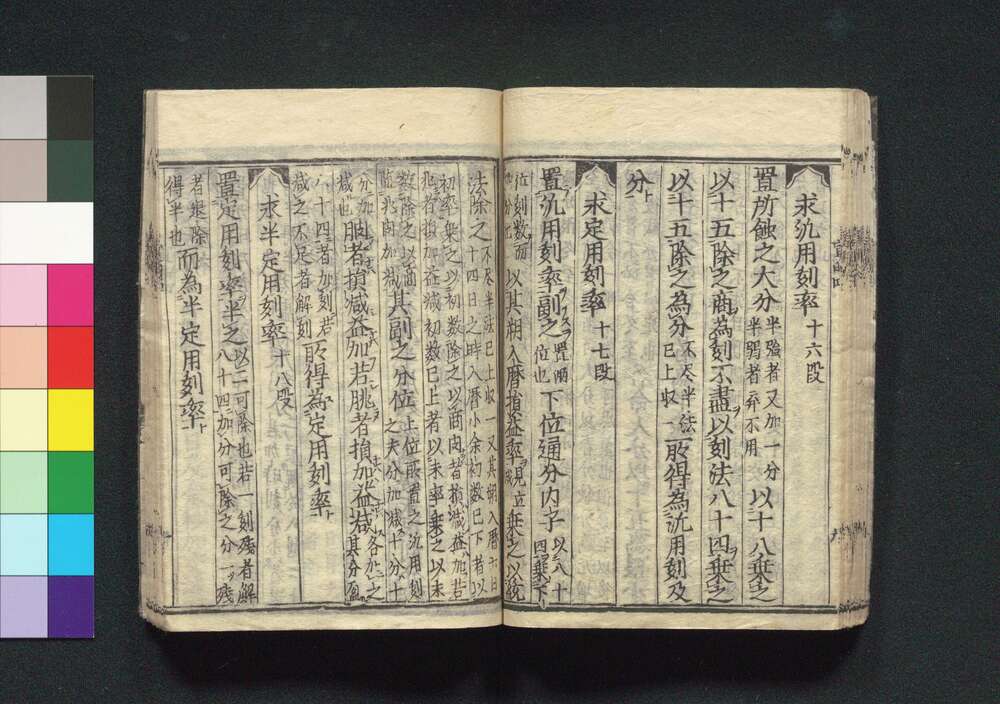 求氿用刻率 十六段
置所蝕之大分 半強者又加一分 半弱者弃不用 以十八乗之
以十五除之商為刻不盡以刻法八十四乗之
以十五除之為分 不尽半法已上收一 所得為氿用刻及
分
求定用刻率 十七段
置氿用刻率副之 置順位也 下位通分内子 以八十四乗下
位刻数而 以其朔入暦損益率 見立 乗之以統
法除之 不尽半法已上收一又其朔入暦七日
十四日之時入暦小余初数已下者以
初率乗之以初数除之以商内者損減益加若
初者損加益減初数已上者以末率乗之以末
数除之以商 其副之分位 上位所置之氿用刻
之夫分加減十分十
分加 朒者損減益加若朓者損加益減 各加之
減也 其分盈
八十四者加刻若 所得為定用刻率
減之不足者解刻
求半定用刻率 十八段
置定用刻率半之 以二可除也若一刻殘者解
八十四加分可除之分一殘
者棄除 而為半定用刻率
得半也